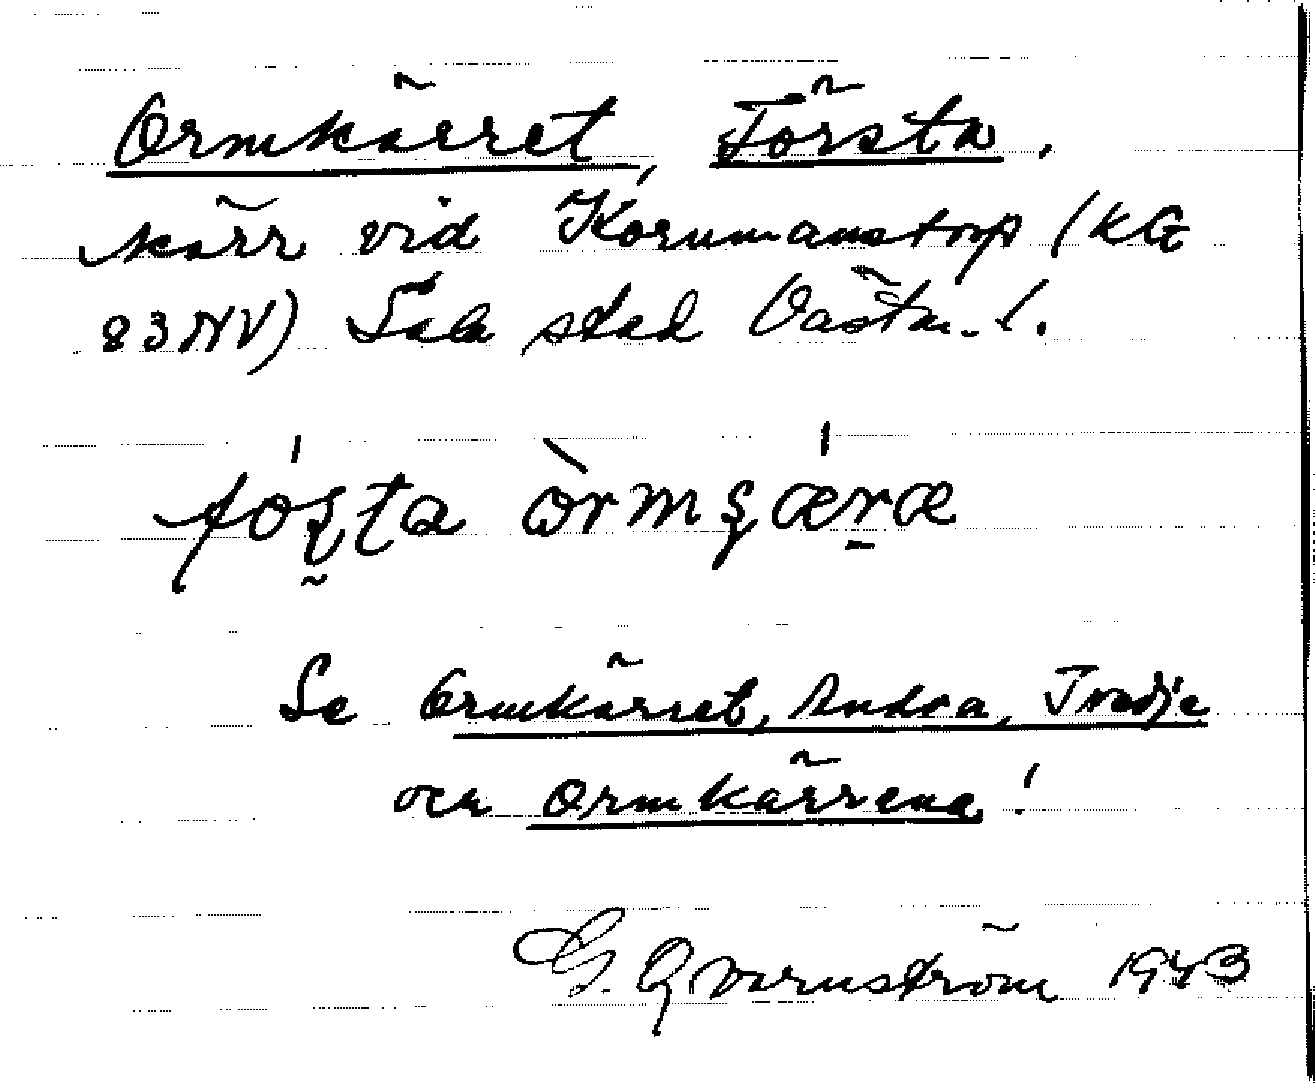 Ormkärret, Första,
kärr vid Kornmanstorp (KG
83NV) Sala stad Västm. l.
fö́ʂʈa òrmʂǽræ
Se Ormkärret, Andra, Tredje
och Ormkärrena!
G. Qvarnström 1943